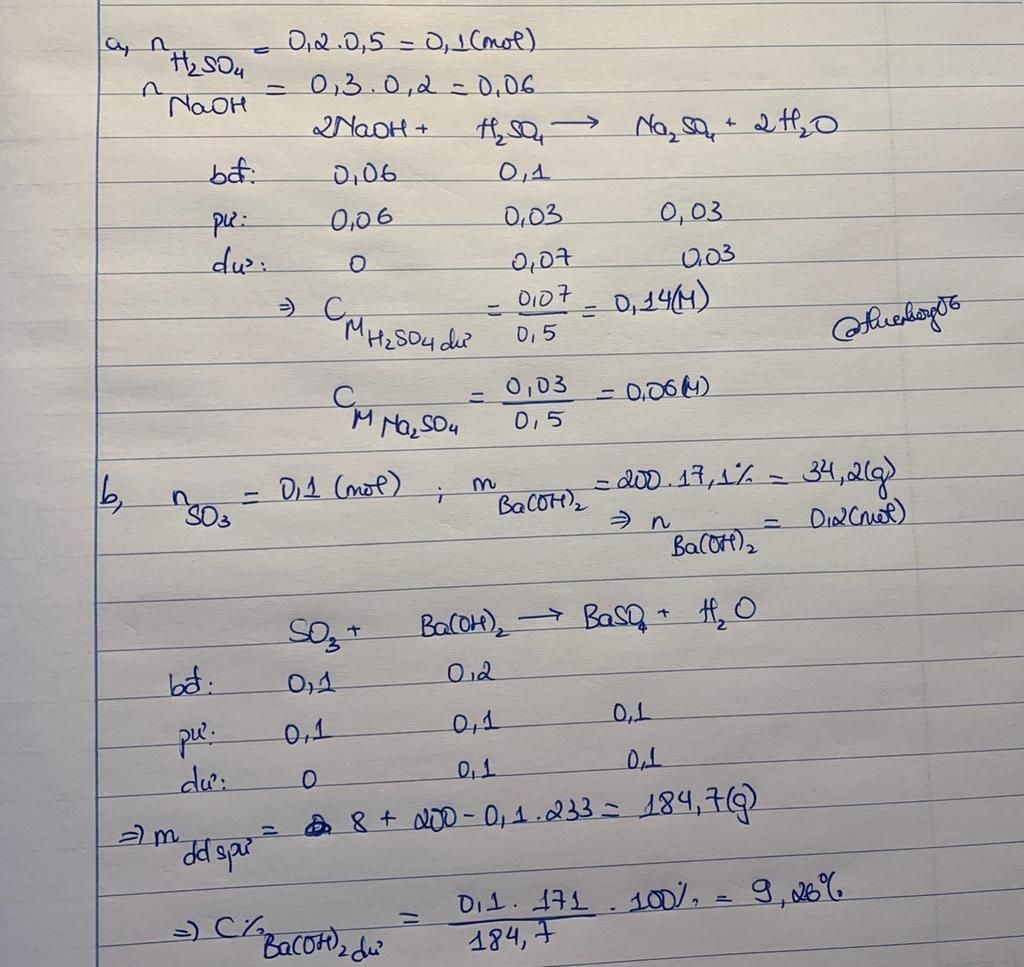 a, n H₂SO₄ = 0,2.0,5 = 0,1(mol)
n NaOH = 0,3.0,2 = 0,06
2NaOH + H₂SO₄ → Na₂SO₄ + 2H₂O
bđ: 0,06 0,1
pư: 0,06 0,03 0,03
dư: 0 0,07 0,03
⇒ C M H₂SO₄ dư = 0,07/0,5 = 0,14(M)
C M Na₂SO₄ = 0,03/0,5 = 0,06(M)
b, n SO₃ = 0,1 (mol) ; m Ba(OH)₂ = 200.17,1% = 34,2(g)
⇒ n Ba(OH)₂ = 0,2(mol)
SO₃ + Ba(OH)₂ → BaSO₄ + H₂O
bđ: 0,1 0,2
pư: 0,1 0,1 0,1
dư: 0 0,1 0,1
⇒ m dd spư = 8 + 200 - 0,1.233 = 184,7(g)
⇒ C% Ba(OH)₂ dư = 0,1.171/184,7 . 100% = 9,26%